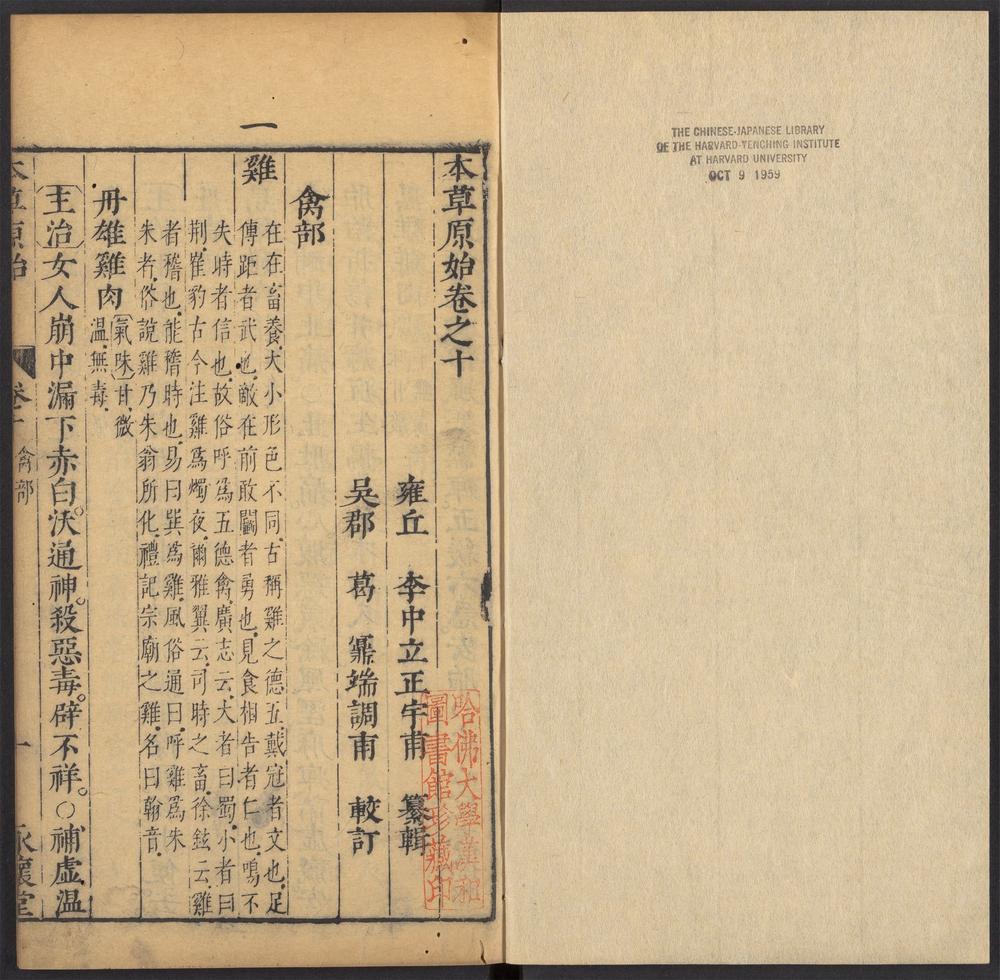 THE CHINESE-JAPANESE LIBRARY
OF THE HARVARD-YENCHING INSTITUTE
AT HARVARD UNIVERSITY
OCT 9 1959
本草原始卷之十
雍丘 李中立正宇甫 纂輯
吳郡 葛鼐端調甫 較訂
哈佛大學漢和
圖書館珍藏印
禽部
一
雞
在在畜養大小形色不同古稱雞之德五戴冠者文也足
傅距者武也敵在前敢鬬者勇也見食相告者仁也鳴不
失時者信也故俗呼爲五德禽廣志云大者曰蜀小者曰
荆崔豹古今注雞爲燭夜爾雅翼云司時之畜徐鉉云雞
者稽也能稽時也易曰巽爲雞風俗通曰呼雞爲朱
朱者俗說雞乃朱翁所化禮記宗廟之雞名曰翰音
丹雄雞肉
氣味甘微
溫無毒
主治女人崩中漏下赤白沃通神。殺惡毒。辟不祥。○補虛溫
本草原始
卷十
禽部
一
永懷堂